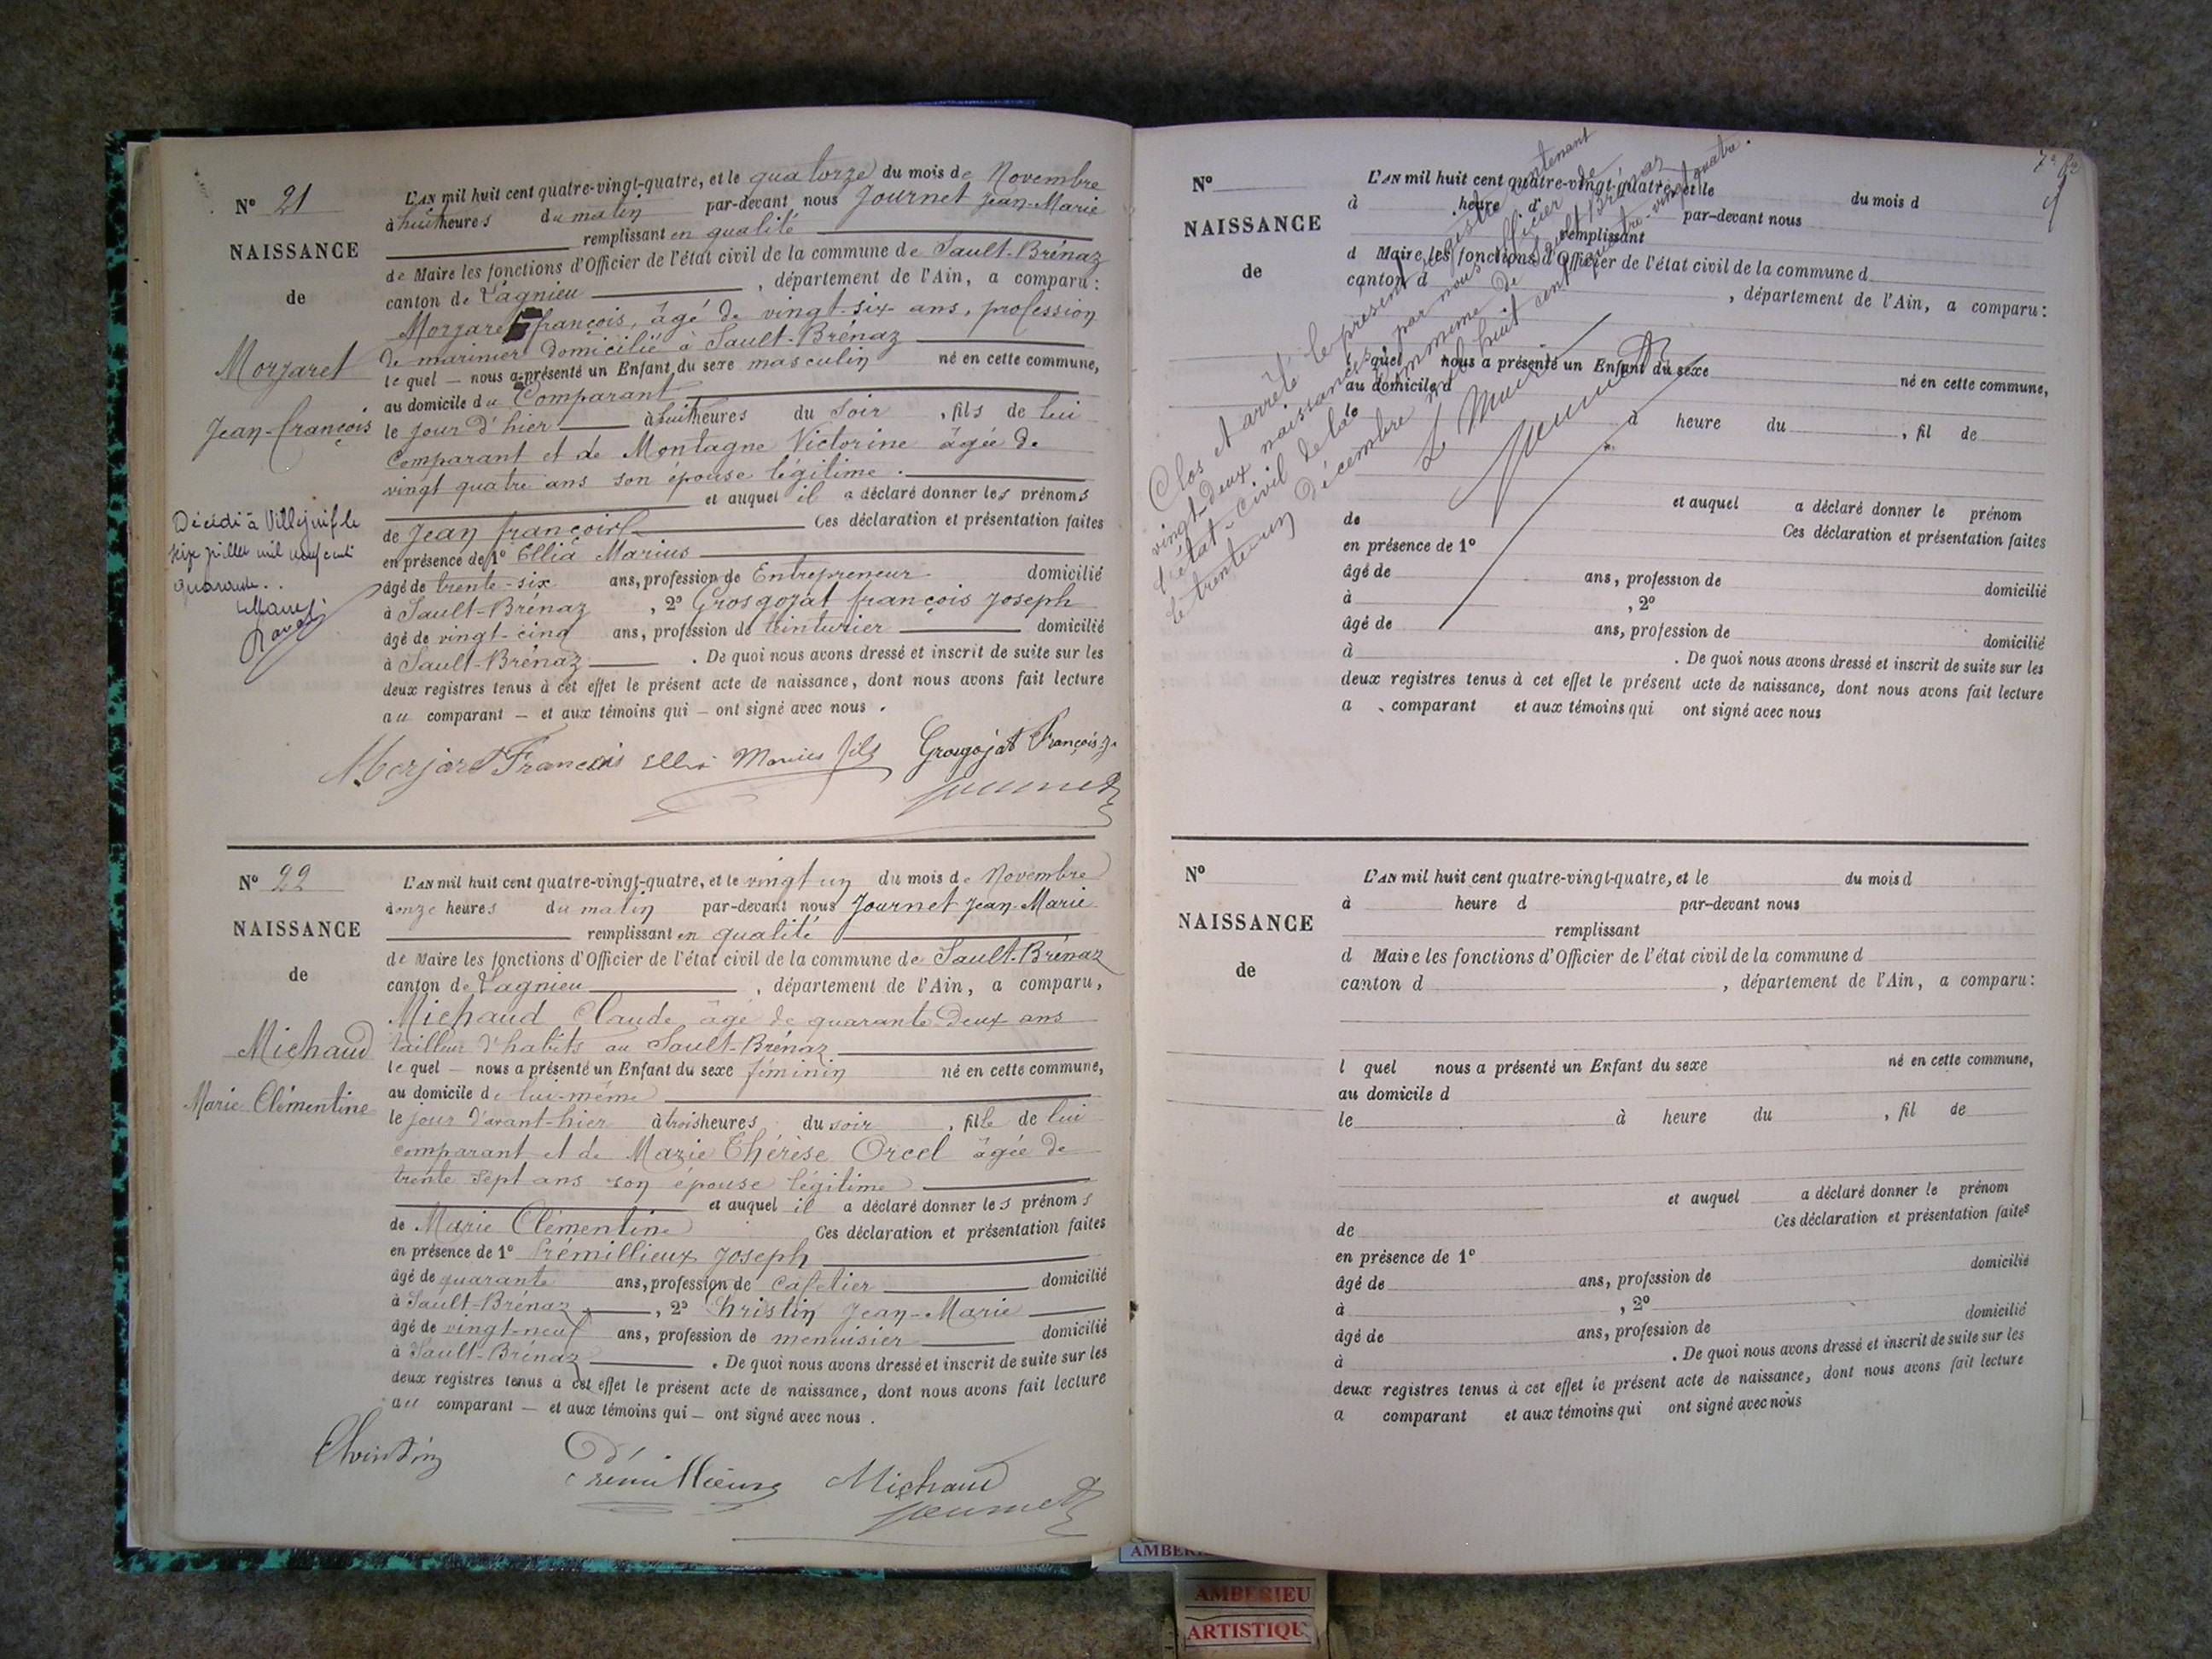 N° 21
NAISSANCE
de
Morgaret
Jean-françois
Décédé à Villejuif le
juillet mil neuf cent
quarante.
L'AN mil huit cent quatre-vingt-quatre, et le quatorze du mois de Novembre
à huit heures du matin par-devant nous Journet Jean-Marie
remplissant en qualité
de Maire les fonctions d'Officier de l'état civil de la commune de Sault-Brénaz
canton de Lagnieu , département de l'Ain, a comparu :
Morgaret françois, âgé de vingt-six ans, profession
de marinier domicilié à Sault-Brénaz
le quel — nous a présenté un Enfant du sexe masculin né en cette commune,
au domicile du Comparant
le jour d'hier à huit heures du soir , fils de lui
Comparant et de Montagne Victorine âgée de
vingt quatre ans son épouse légitime .
et auquel il a déclaré donner les prénoms
de Jean françois Ces déclaration et présentation faites
en présence de 1° Ellia Marius
âgé de trente-six ans, profession de Entrepreneur domicilié
à Sault-Brénaz , 2° Grosgojat françois Joseph
âgé de vingt-cinq ans, profession de teinturier domicilié
à Sault-Brénaz . De quoi nous avons dressé et inscrit de suite sur les
deux registres tenus à cet effet le présent acte de naissance, dont nous avons fait lecture
au comparant — et aux témoins qui — ont signé avec nous .
François Ellia Marius fils Grosgojat François J.
Journet
N° 22
NAISSANCE
de
Michaud
Marie Clémentine
L'AN mil huit cent quatre-vingt-quatre, et le vingt un du mois de Novembre
à onze heures du matin par-devant nous Journet Jean-Marie
remplissant en qualité
de Maire les fonctions d'Officier de l'état civil de la commune de Sault-Brénaz
canton de Lagnieu , département de l'Ain, a comparu,
Michaud Claude âgé de quarante-deux ans
tailleur d'habits au Sault-Brénaz
le quel — nous a présenté un Enfant du sexe féminin né en cette commune,
au domicile de lui-même
le jour d'avant-hier à trois heures du soir , fille de lui
comparant et de Marie Thérèse Orcel âgée de
trente sept ans son épouse légitime
et auquel il a déclaré donner les prénoms
de Marie Clémentine Ces déclaration et présentation faites
en présence de 1° Trémillieux Joseph
âgé de quarante ans, profession de Cafetier domicilié
à Sault-Brénaz , 2° Christin Jean-Marie
âgé de vingt-neuf ans, profession de menuisier domicilié
à Sault-Brénaz . De quoi nous avons dressé et inscrit de suite sur les
deux registres tenus à cet effet le présent acte de naissance, dont nous avons fait lecture
au comparant — et aux témoins qui — ont signé avec nous .
Christin
Trémillieux Michaud
Journet
N°
NAISSANCE
de
L'AN mil huit cent quatre-vingt-quatre, et le du mois d
à heure d par-devant nous
remplissant
d Maire les fonctions d'Officier de l'état civil de la commune d
canton d , département de l'Ain, a comparu:
l quel nous a présenté un Enfant du sexe né en cette commune,
au domicile d
le à heure du , fil de
et auquel a déclaré donner le prénom
de Ces déclaration et présentation faites
en présence de 1°
âgé de ans, profession de domicilié
à , 2°
âgé de ans, profession de domicilié
à . De quoi nous avons dressé et inscrit de suite sur les
deux registres tenus à cet effet le présent acte de naissance, dont nous avons fait lecture
a comparant et aux témoins qui ont signé avec nous
Clos et arrêté le présent registre contenant
vingt-deux naissances par nous officier de
l'état-civil de la commune de Sault-Brénaz
le trente-un Décembre mil huit cent quatre-vingt quatre.
Le Maire
Journet
N°
NAISSANCE
de
L'AN mil huit cent quatre-vingt-quatre, et le du mois d
à heure d par-devant nous
remplissant
d Maire les fonctions d'Officier de l'état civil de la commune d
canton d , département de l'Ain, a comparu:
l quel nous a présenté un Enfant du sexe né en cette commune,
au domicile d
le à heure du , fil de
et auquel a déclaré donner le prénom
de Ces déclaration et présentation faites
en présence de 1°
âgé de ans, profession de domicilié
à , 2°
âgé de ans, profession de domicilié
à . De quoi nous avons dressé et inscrit de suite sur les
deux registres tenus à cet effet le présent acte de naissance, dont nous avons fait lecture
a comparant et aux témoins qui ont signé avec nous
AMBERIEU
ARTISTIQU